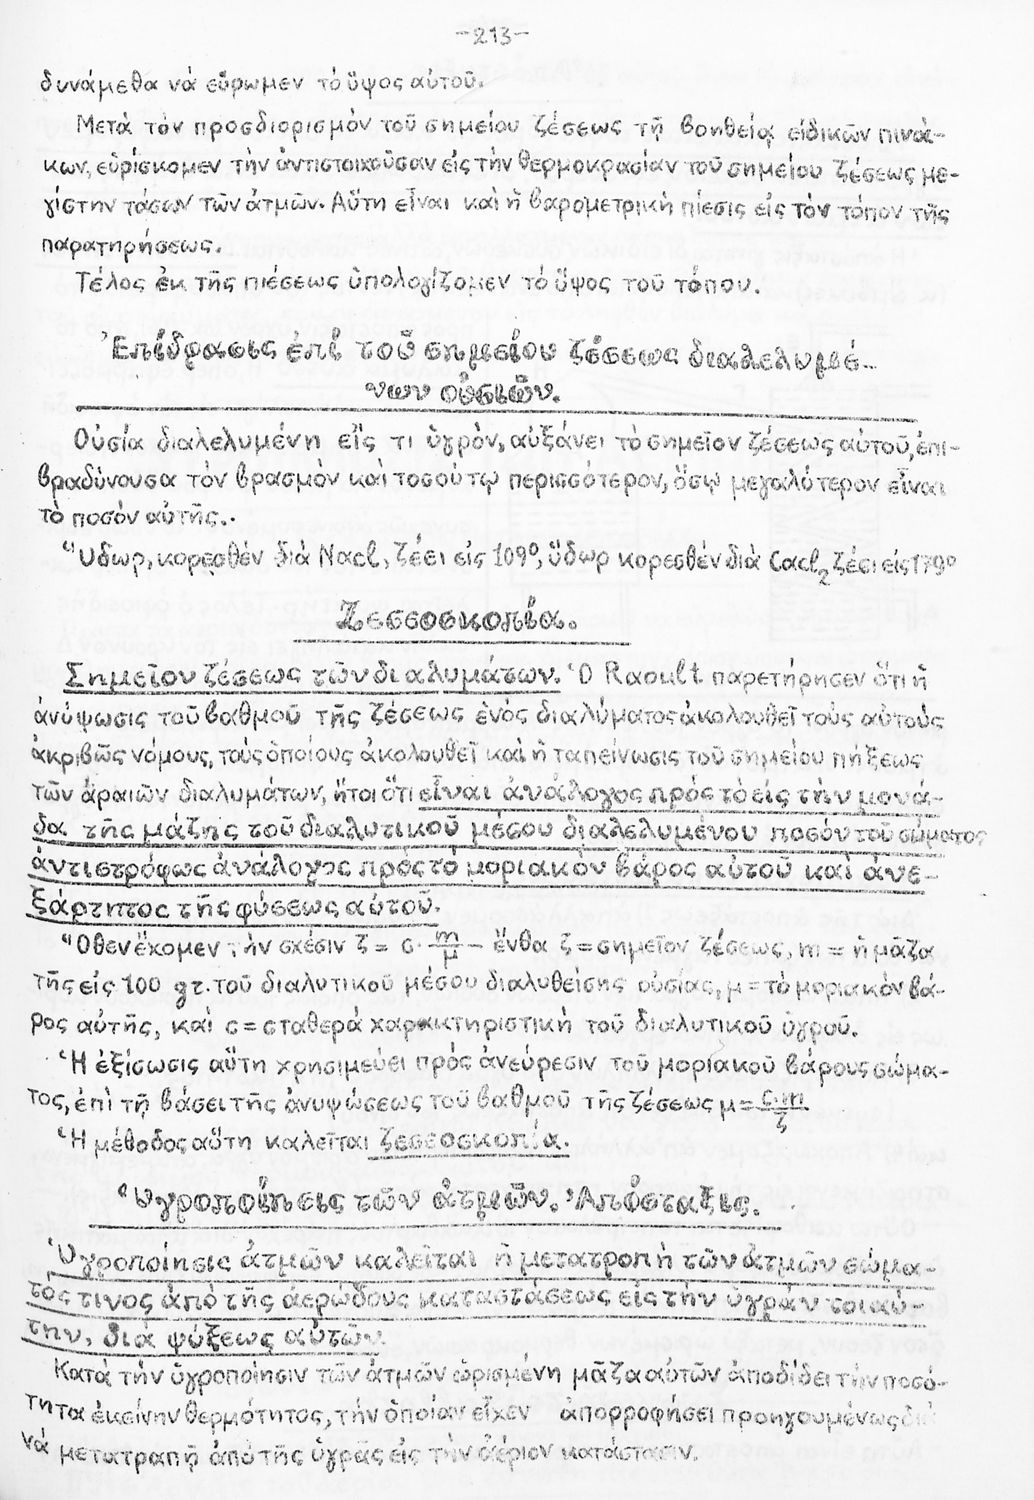 -213-
δυνάμεθα νά εὕρωμεν τό ὕψος αὐτοῦ.
Μετά τόν προσδιορισμόν τοῦ σημείου ζέσεως τῇ βοηθείᾳ εἰδικῶν πινά-
κων, εὑρίσκομεν τήν ἀντιστοιχοῦσαν εἰς τήν θερμοκρασίαν τοῦ σημείου ζέσεως με-
γίστην τάσιν τῶν ἀτμῶν. Αὕτη εἶναι καί ἡ βαρομετρική πίεσις εἰς τόν τόπον τῆς
παρατηρήσεως.
Τέλος ἐκ τῆς πιέσεως ὑπολογίζομεν τό ὕψος τοῦ τόπου.
Ἐπίδρασις ἐπί τοῦ σημείου ζέσεως διαλελυμέ-
νων οὐσιῶν.
Οὐσία διαλελυμένη εἴς τι ὑγρόν, αὐξάνει τό σημεῖον ζέσεως αὐτοῦ, ἐπι-
βραδύνουσα τόν βρασμόν καί τοσούτῳ περισσότερον, ὅσῳ μεγαλύτερον εἶναι
τό ποσόν αὐτῆς..
Ὕδωρ, κορεσθέν διά Nacl, ζέει εἰς 109°, ὕδωρ κορεσθέν διά Cacl₂ ζέει εἰς 179°
Ζεσσοσκοπία.
Σημεῖον ζέσεως τῶν διαλυμάτων. Ὁ Raoult παρετήρησεν ὅτι ἡ
ἀνύψωσις τοῦ βαθμοῦ τῆς ζέσεως ἑνός διαλύματος ἀκολουθεῖ τούς αὐτούς
ἀκριβῶς νόμους, τούς ὁποίους ἀκολουθεῖ καί ἡ ταπείνωσις τοῦ σημείου πήξεως
τῶν ἀραιῶν διαλυμάτων, ἤτοι ὅτι εἶναι ἀνάλογος πρός τό εἰς τήν μονά-
δα τῆς μάζης τοῦ διαλυτικοῦ μέσου διαλελυμένου ποσόν τοῦ σώματος
ἀντιστρόφως ἀνάλογος πρός τό μοριακόν βάρος αὐτοῦ καί ἀνε-
ξάρτητος τῆς φύσεως αὐτοῦ.
Ὅθεν ἔχομεν τήν σχέσιν ζ = c · m/μ – ἔνθα ζ = σημεῖον ζέσεως, m = ἡ μᾶζα
τῆς εἰς 100 gr. τοῦ διαλυτικοῦ μέσου διαλυθείσης οὐσίας, μ = τό μοριακόν βά-
ρος αὐτῆς, καί c = σταθερά χαρακτηριστική τοῦ διαλυτικοῦ ὑγροῦ.
Ἡ ἐξίσωσις αὕτη χρησιμεύει πρός ἀνεύρεσιν τοῦ μοριακοῦ βάρους σώμα-
τος, ἐπί τῇ βάσει τῆς ἀνυψώσεως τοῦ βαθμοῦ τῆς ζέσεως μ = c·m/ζ
Ἡ μέθοδος αὕτη καλεῖται ζεσεοσκοπία.
Ὑγροποίησις τῶν ἀτμῶν. Ἀπόσταξις.
Ὑγροποίησις ἀτμῶν καλεῖται ἡ μετατροπή τῶν ἀτμῶν σώμα-
τός τινος ἀπό τῆς ἀερώδους καταστάσεως εἰς τήν ὑγράν τοιαύ-
την, διά ψύξεως αὐτῶν.
Κατά τήν ὑγροποίησιν τῶν ἀτμῶν ὡρισμένη μᾶζα αὐτῶν ἀποδίδει τήν ποσό-
τητα ἐκείνην θερμότητος, τήν ὁποίαν εἶχεν ἀπορροφήσει προηγουμένως διά
νά μετατραπῇ ἀπό τῆς ὑγρᾶς εἰς τήν ἀέριον κατάστασιν.